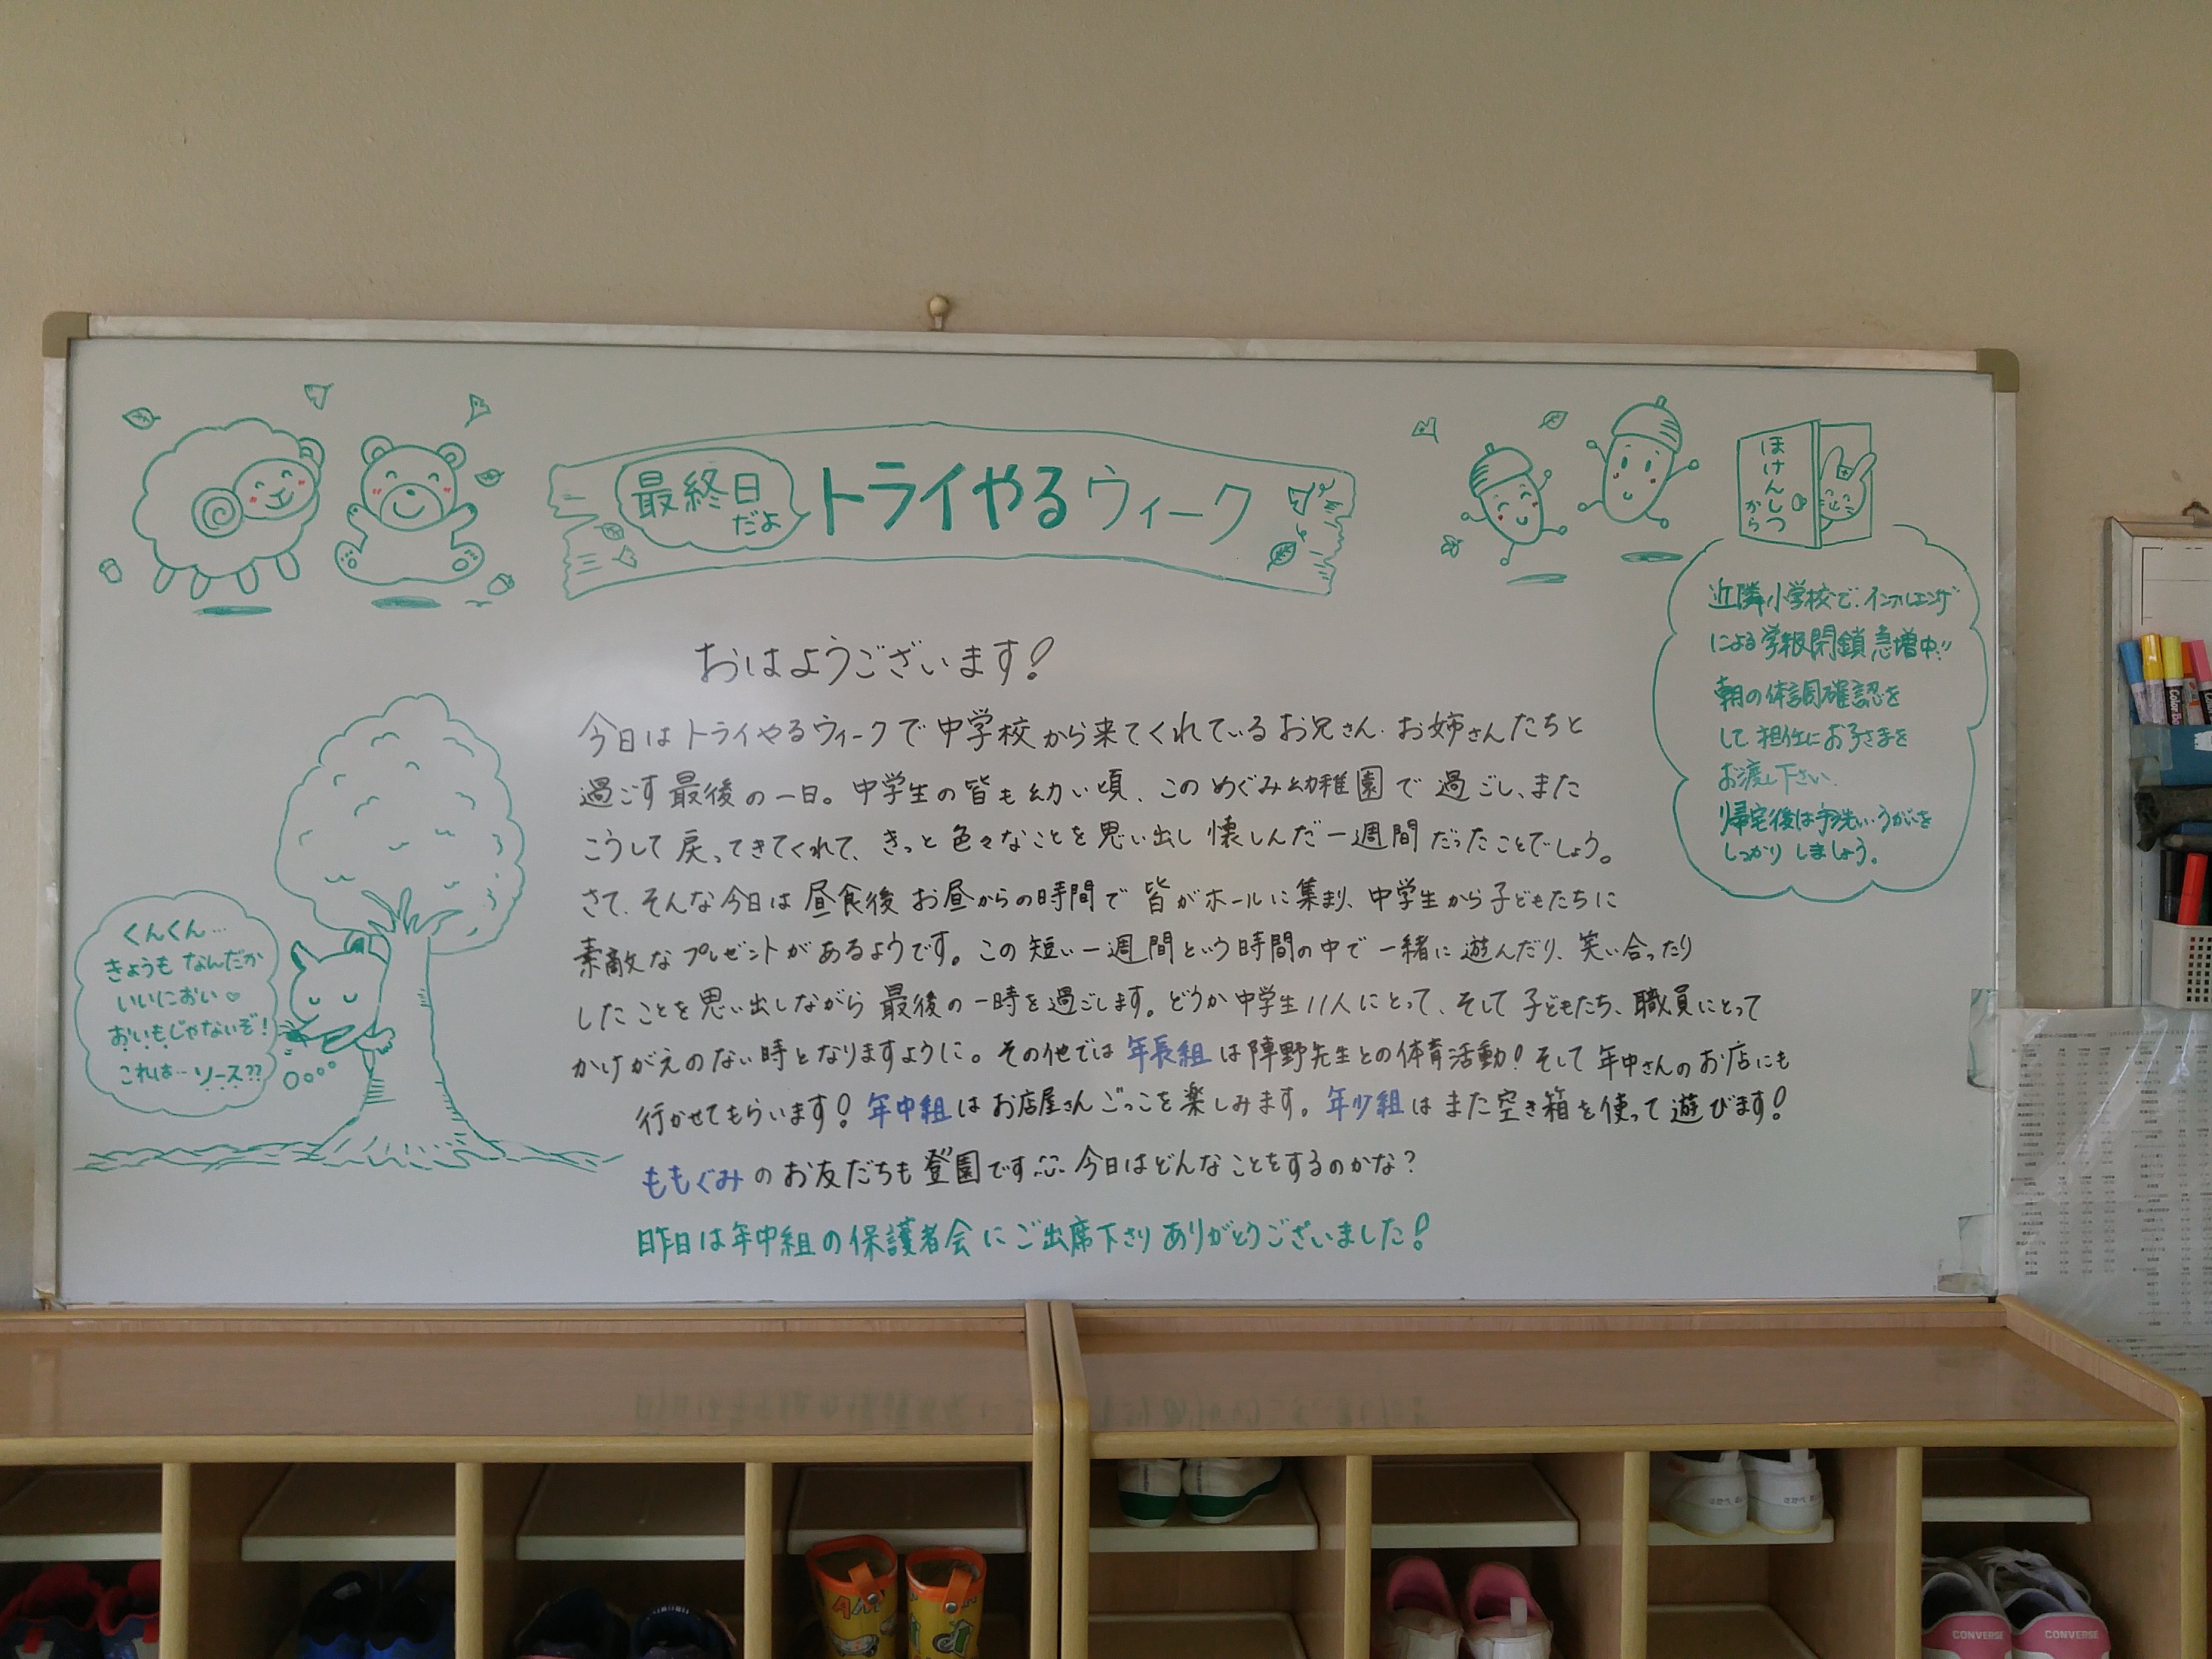 最終日
だよ
トライやるウィーク
ほけんしつ
から
近隣小学校で、インフルエンザ
による学級閉鎖急増中!!
朝の体調確認を
して担任にお子さまを
お渡し下さい。
帰宅後は手洗い・うがいを
しっかりしましょう。
おはようございます!
今日はトライやるウィークで中学校から来てくれているお兄さん・お姉さんたちと
過ごす最後の一日。中学生の皆も幼い頃、このめぐみ幼稚園で過ごし、また
こうして戻ってきてくれて、きっと色々なことを思い出し懐しんだ一週間だったことでしょう。
さて、そんな今日は昼食後お昼からの時間で皆がホールに集まり、中学生から子どもたちに
素敵なプレゼントがあるようです。この短い一週間という時間の中で一緒に遊んだり、笑い合ったり
したことを思い出しながら最後の一時を過ごします。どうか中学生11人にとって、そして子どもたち、職員にとって
かけがえのない時となりますように。その他では年長組は陣野先生との体育活動!そして年中さんのお店にも
行かせてもらいます!年中組はお店屋さんごっこを楽しみます。年少組はまた空き箱を使って遊びます!
ももぐみのお友だちも登園です 今日はどんなことをするのかな?
昨日は年中組の保護者会にご出席下さりありがとうございました!
くんくん…
きょうもなんだか
いいにおい♡
おいもじゃないぞ!
これは…ソース??
CONVERSE
CONVERSE